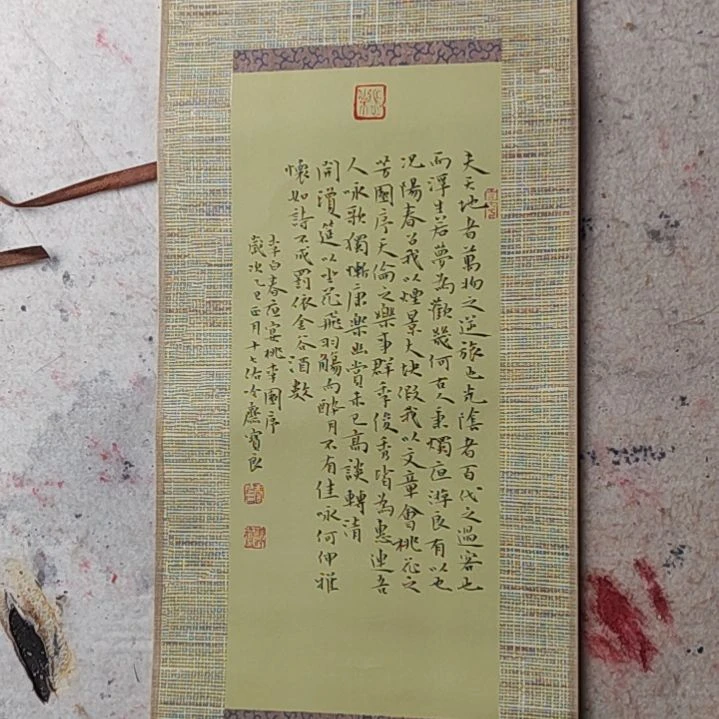 夫天地者萬物之逆旅也光陰者百代之過客也
而浮生若夢為歡幾何古人秉燭夜游良有以也
況陽春召我以煙景大塊假我以文章會桃花之
芳園序天倫之樂事群季俊秀皆為惠連吾
人咏歌獨慚康樂幽賞未已高談轉清
開瓊筵以坐花飛羽觴而醉月不有佳咏何伸雅
懷如詩不成罰依金谷酒數
李白春夜宴桃李園序
歲次乙巳正月十七